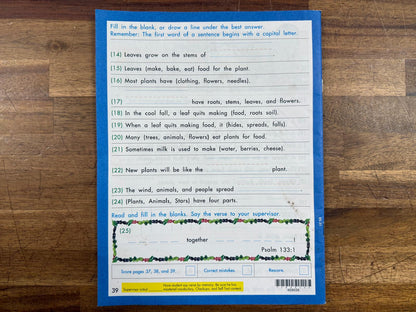 Fill in the blank, or draw a line under the best answer.
Remember: The first word of a sentence begins with a capital letter.
(14) Leaves grow on the stems of
(15) Leaves (make, bake, eat) food for the plant.
(16) Most plants have (clothing, flowers, needles).
(17) have roots, stems, leaves, and flowers.
(18) In the cool fall, a leaf quits making (food, roots soil).
(19) When a leaf quits making food, it (hides, spreads, falls).
(20) Many (trees, animals, flowers) eat plants for food.
(21) Sometimes milk is used to make (water, berries, cheese).
(22) New plants will be like the plant.
(23) The wind, animals, and people spread
(24) (Plants, Animals, Stars) have four parts.
Read and fill in the blanks. Say the verse to your supervisor.
(25)
together !
Psalm 133:1
Score pages 37, 38, and 39.
Correct mistakes.
Rescore.
39
Supervisor initial